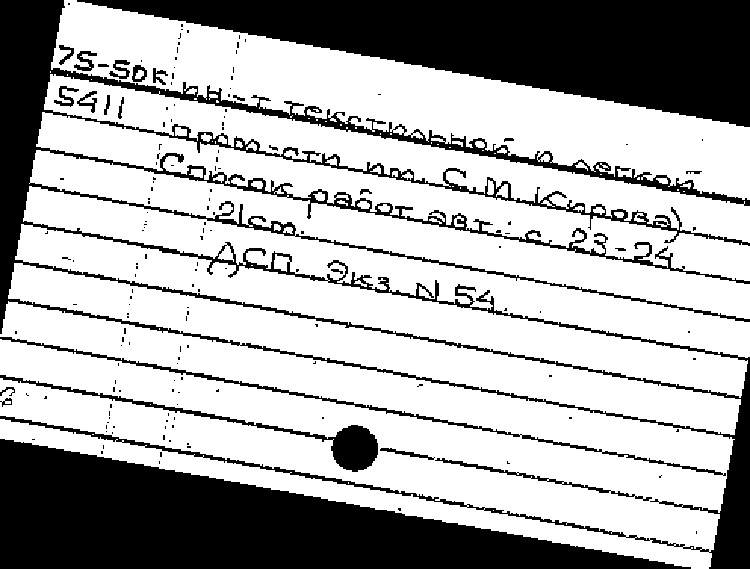 75-50к ин-т текстильной и легкой
5411 пром-сти им. С.М. Кирова).
Список работ авт.: с. 23-24.
21 см.
ДСП. Экз. N 54.